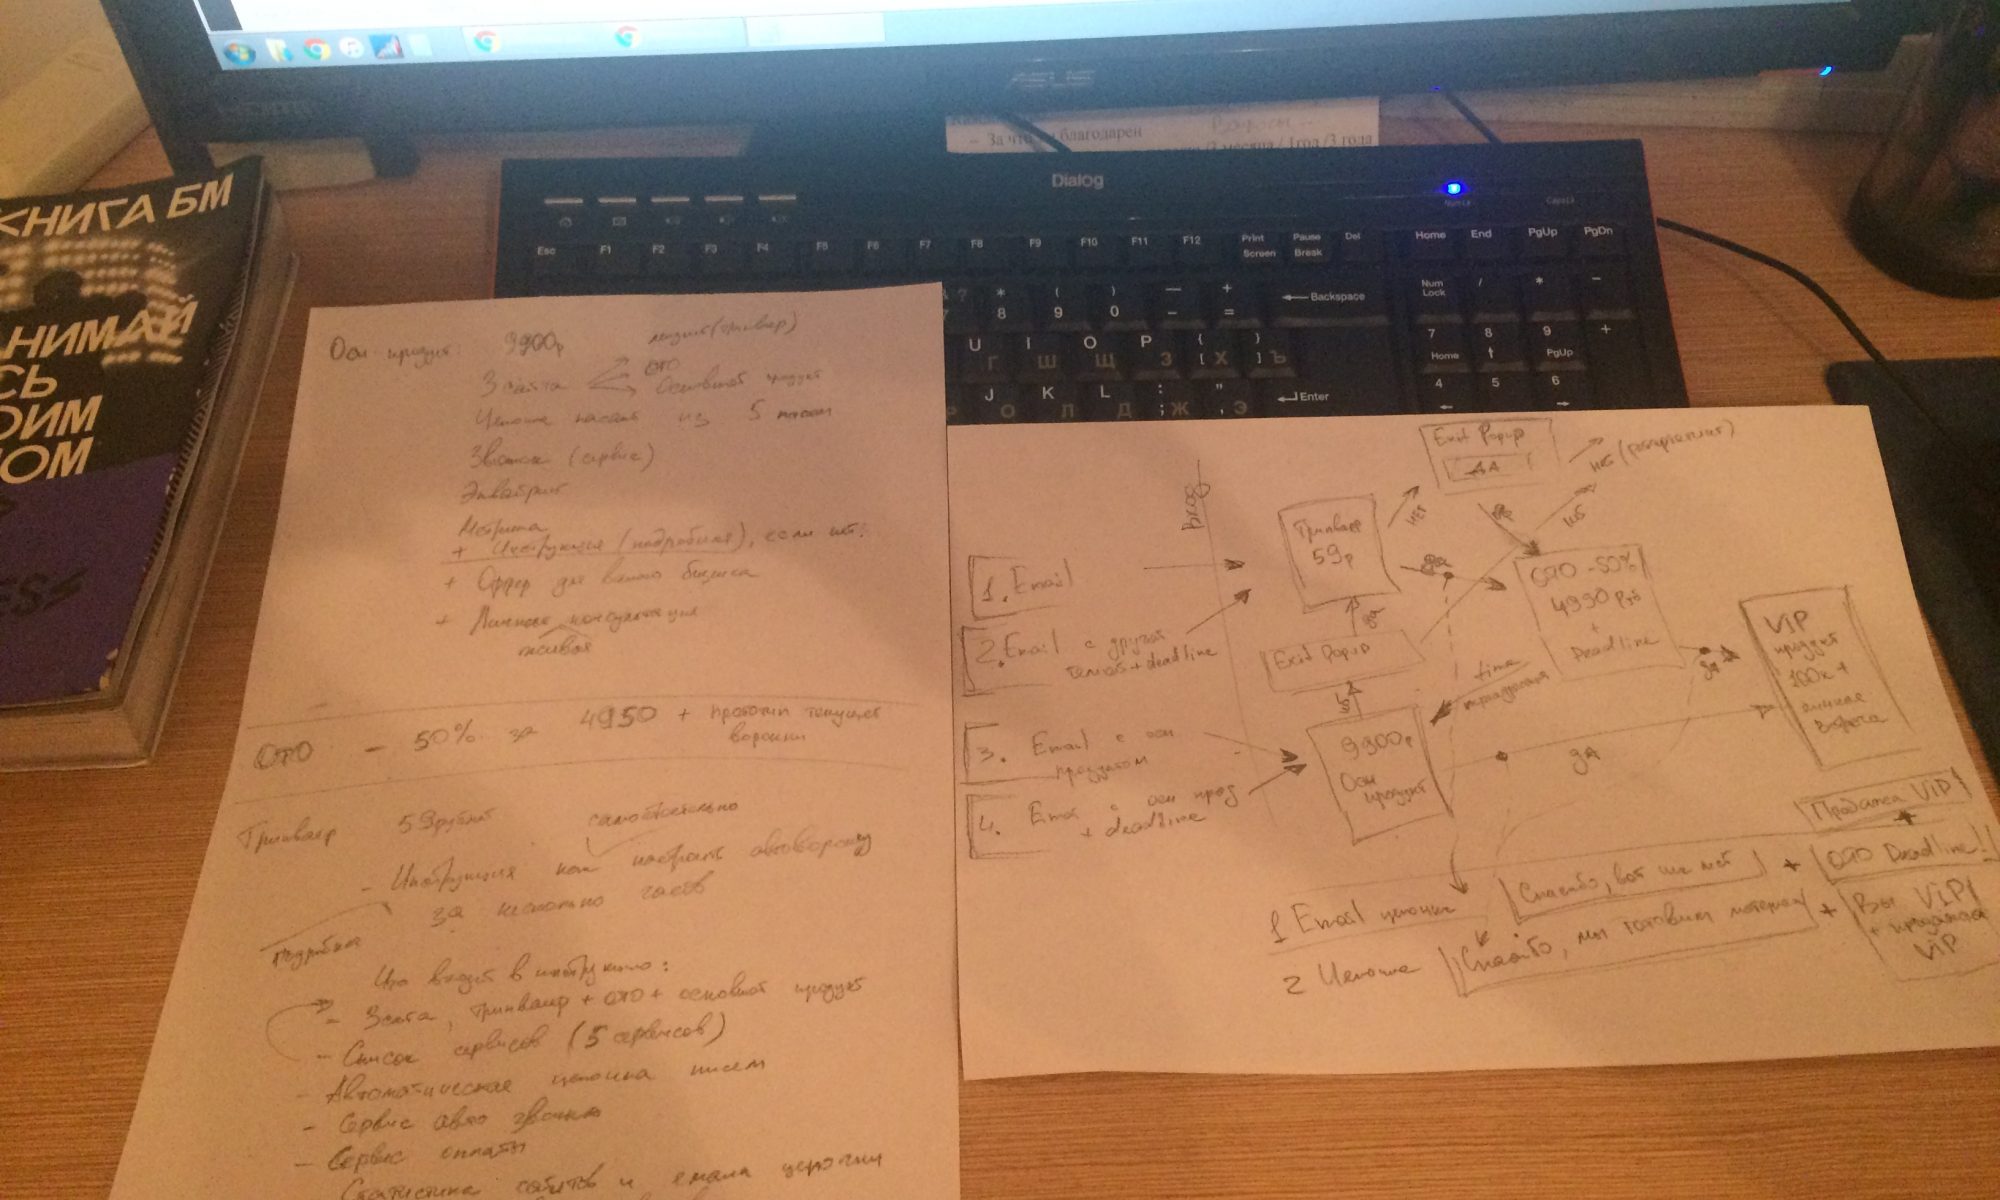 КНИГА БМ
НИМАЙ
СЬ
ОИМ
ОМ
ESS
ASUS
- За что благодарен
Вопросы
месяца / 1год /3 года
Dialog
Num Lk
Caps Lk
Esc F1 F2 F3 F4 F5 F6 F7 F8 F9 F10 F11 F12 Print Screen Pause Break Del Home End PgUp PgDn
* ( ) — +
7 8 9 0 - = Backspace Num Lock / * -
U I O P { }
Г Ш Щ З [ Х ] Ъ
7 8 9 +
Home PgUp
J K L : "
О Л Д ; Ж , Э Enter
4 5 6
Осн продукт: 9900р
(трипваер)
3 сайта
ОТО
Основной продукт
Цепочка писем из 5 писем
Звонок (сервис)
Эквайринг
Метрика
+ Инструкция (подробная), если нет:
+ Оффер для вашего бизнеса
+ Личная консультация
живая
ОТО - 50% за 4950 + прототип текущей
воронки
Трипваер 59рублей
самостоятельно
- Инструкция как настроить автоворонку
за несколько часов
Подробная
Что входит в инструкцию:
- 3сайта, Трипваер + ОТО + основной продукт
- Список сервисов (5 сервисов)
- Автоматическая цепочка писем
- Сервис авто звонка
- Сервис оплаты
Статистика сайтов и емайл цепочки
Вход
Exit Popup
ДА
нет
Трипваер
59р
нет
да
да
нет
ОТО -50%
4990 руб
+
Deadline
1. Email
2. Email с другой
темой + deadline
Exit Popup
да
нет
time
VIP
продукт
100к +
личная
встреча
да
3. Email с осн
продуктом
4. Email с осн прод
+ deadline
9900р
Осн
продукт
ДА
Продажа VIP
+
1 Email цепочка
Спасибо, вот ше мет
+
ОТО Deadline!!
2 Цепочка
Спасибо, мы готовим материал
+
Вы VIP!
+ продажа
VIP